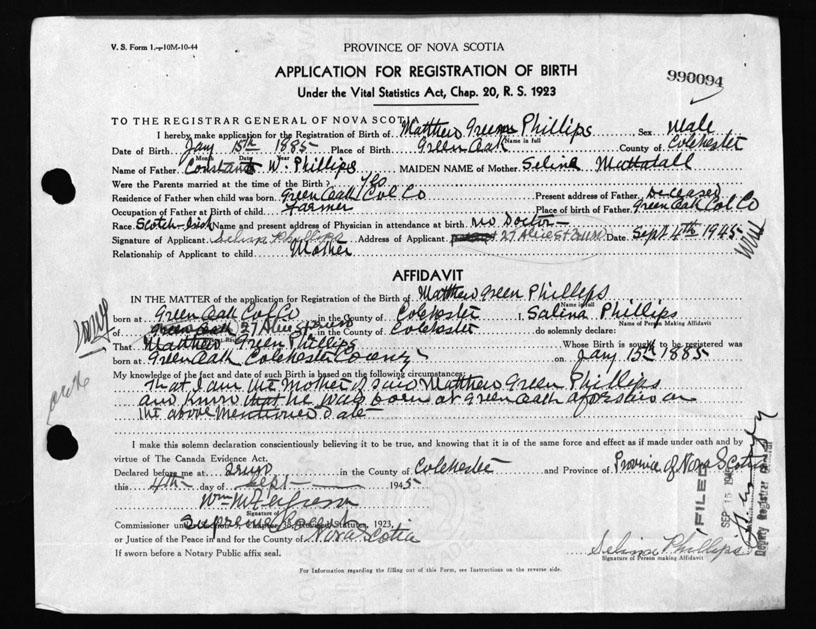 V. S. Form 1.—10M-10-44
PROVINCE OF NOVA SCOTIA
APPLICATION FOR REGISTRATION OF BIRTH
Under the Vital Statistics Act, Chap. 20, R. S. 1923
990094
TO THE REGISTRAR GENERAL OF NOVA SCOTIA
I hereby make application for the Registration of Birth of Matthew Green Phillips Sex Male
Name in full
Date of Birth Jany 15th 1885 Place of Birth Green Oak County of Colchester
Month Date Year
Name of Father Constant W. Phillips MAIDEN NAME of Mother Selina Mattatall
Were the Parents married at the time of the Birth? Yes
Residence of Father when child was born Green Oak Col Co Present address of Father Deceased
Occupation of Father at Birth of child farmer Place of birth of Father Green Oak Col Co
Race Scotch-Irish Name and present address of Physician in attendance at birth no Doctor
Signature of Applicant Selina Phillips Address of Applicant 27 Alice St Truro Date Sept 4th 1945
Relationship of Applicant to child Mother
AFFIDAVIT
IN THE MATTER of the application for Registration of the Birth of Matthew Green Phillips
Name in full
born at Green Oak Col Co in the County of Colchester I, Salina Phillips
Name of Person Making Affidavit
of Green Oak 27 Alice St Truro in the County of Colchester do solemnly declare:
That Matthew Green Phillips Whose Birth is sought to be registered was
born at Green Oak Colchester County on Jany 15th 1885
My knowledge of the fact and date of such Birth is based on the following circumstances:
That I am the mother of said Matthew Green Phillips
and know that he was born at Green Oak aforesaid on
the above mentioned date
I make this solemn declaration conscientiously believing it to be true, and knowing that it is of the same force and effect as if made under oath and by
virtue of The Canada Evidence Act.
Declared before me at Truro in the County of Colchester and Province of Province of Nova Scotia
this 4th day of Sept 1945
Wm M Ferguson
Signature of
Commissioner under Section 38, Revised Statutes, 1923,
Supreme Court
or Justice of the Peace in and for the County of Nova Scotia
If sworn before a Notary Public affix seal.
Selina Phillips
Signature of Person making Affidavit
For Information regarding the filling out of this Form, see Instructions on the reverse side.
FILED
SEP 15 1945
Deputy Registrar General